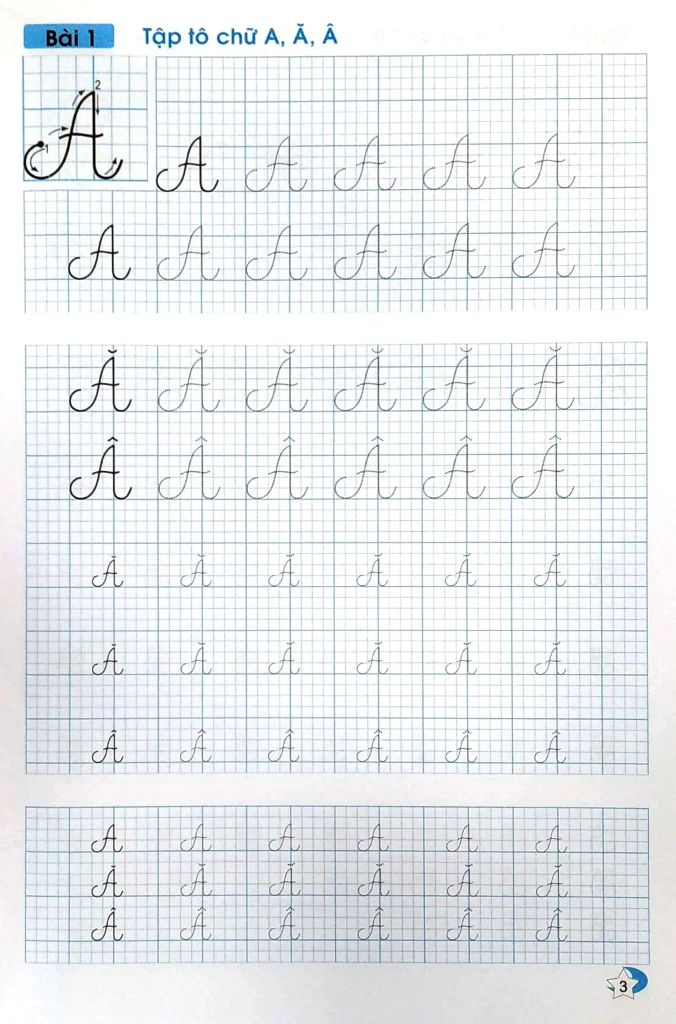 Bài 1 Tập tô chữ A, Ă, Â
1 2 A
A A A A A
A A A A A A
Ă Ă Ă Ă Ă Ă
Â Â Â Â Â Â
Ă Ă Ă Ă Ă Ă
Ă Ă Ă Ă Ă Ă
Â Â Â Â Â Â
A A A A A A
Ă Ă Ă Ă Ă Ă
Â Â Â Â Â Â
3